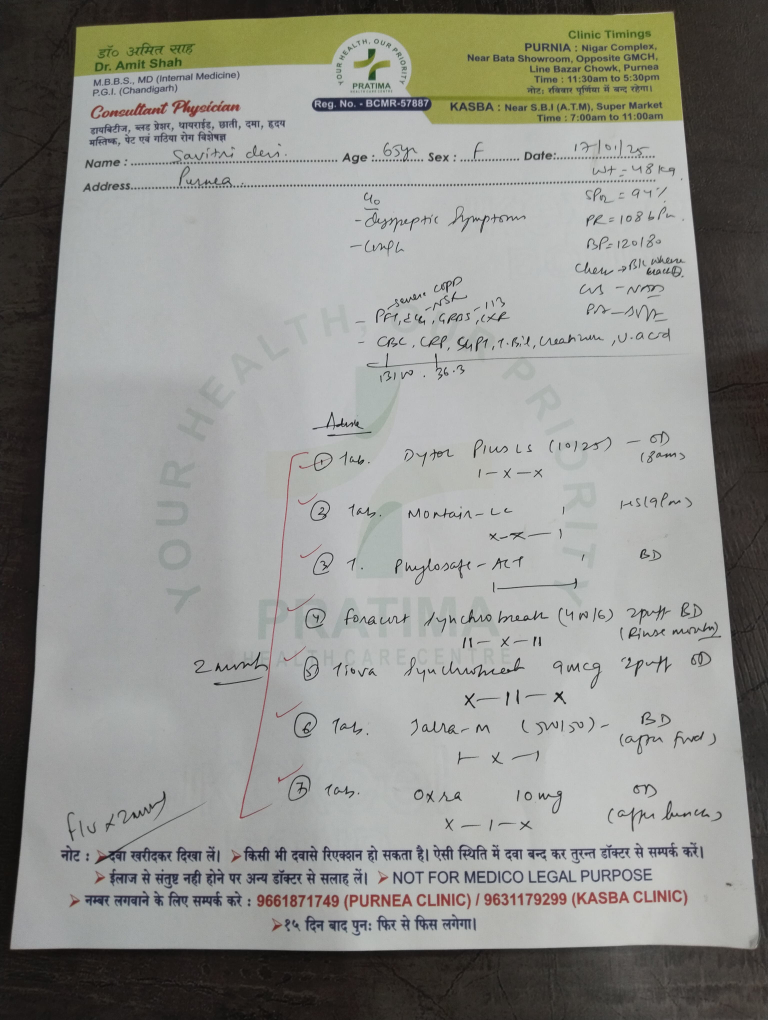 डॉ० अमित साह
Dr. Amit Shah
M.B.B.S., MD (Internal Medicine)
P.G.I. (Chandigarh)
Consultant Physician
डायबिटीज, ब्लड प्रेशर, थायराईड, छाती, दमा, हृदय
मस्तिष्क, पेट एवं गठिया रोग विशेषज्ञ
YOUR HEALTH, OUR PRIORITY
PRATIMA
HEALTH CARE CENTRE
Reg. No. - BCMR-57887
Clinic Timings
PURNIA : Nigar Complex,
Near Bata Showroom, Opposite GMCH,
Line Bazar Chowk, Purnea
Time : 11:30am to 5:30pm
नोट: रविवार पूर्णिया में बन्द रहेगा।
KASBA : Near S.B.I (A.T.M), Super Market
Time : 7:00am to 11:00am
Name : Savitri devi. Age : 65yr Sex : F Date: 17/01/25
Address Purnea
Wt = 48 kg
SPO2 = 94%
PR = 108 bPm
BP = 120/80
c/o
- Dyspeptic Symptoms
- Cough
Chest → B/L wheeze
CVS - NAD
severe COPD
NSR
113
- PFT, ECG, GRBS, CXR
- CBC, CRP, SGPT, T.Bil, Creatinine, U.acid
13100 36.3
Advice
① Tab. Dytor Plus LS (10/25) - OD
(8am)
1 - x - x
② Tab. Montair-LC HS (9Pm)
x - x - 1
③ T. Phylosafe-ACT BD
④ Foracort Synchrobreath (400/6) 2puff BD
(Rinse mouth)
11 - x - 11
⑤ Tiova Synchrobreath 9mcg 2puff OD
x - 11 - x
⑥ Tab. Jalra-M (500/50) - BD
(after food)
1 - x - 1
⑦ Tab. Oxra 10mg OD
(after lunch)
x - 1 - x
2 month
F/U x 2 month
YOUR HEALTH, OUR PRIORITY
PRATIMA
HEALTH CARE CENTRE
नोट : ➤दवा खरीदकर दिखा लें। ➤किसी भी दवासे रिएक्शन हो सकता है। ऐसी स्थिति में दवा बन्द कर तुरन्त डॉक्टर से सम्पर्क करें।
➤ईलाज से संतुष्ट नही होने पर अन्य डॉक्टर से सलाह लें। ➤NOT FOR MEDICO LEGAL PURPOSE
➤नम्बर लगवाने के लिए सम्पर्क करे : 9661871749 (PURNEA CLINIC) / 9631179299 (KASBA CLINIC)
➤१५ दिन बाद पुन: फिर से फिस लगेगा।